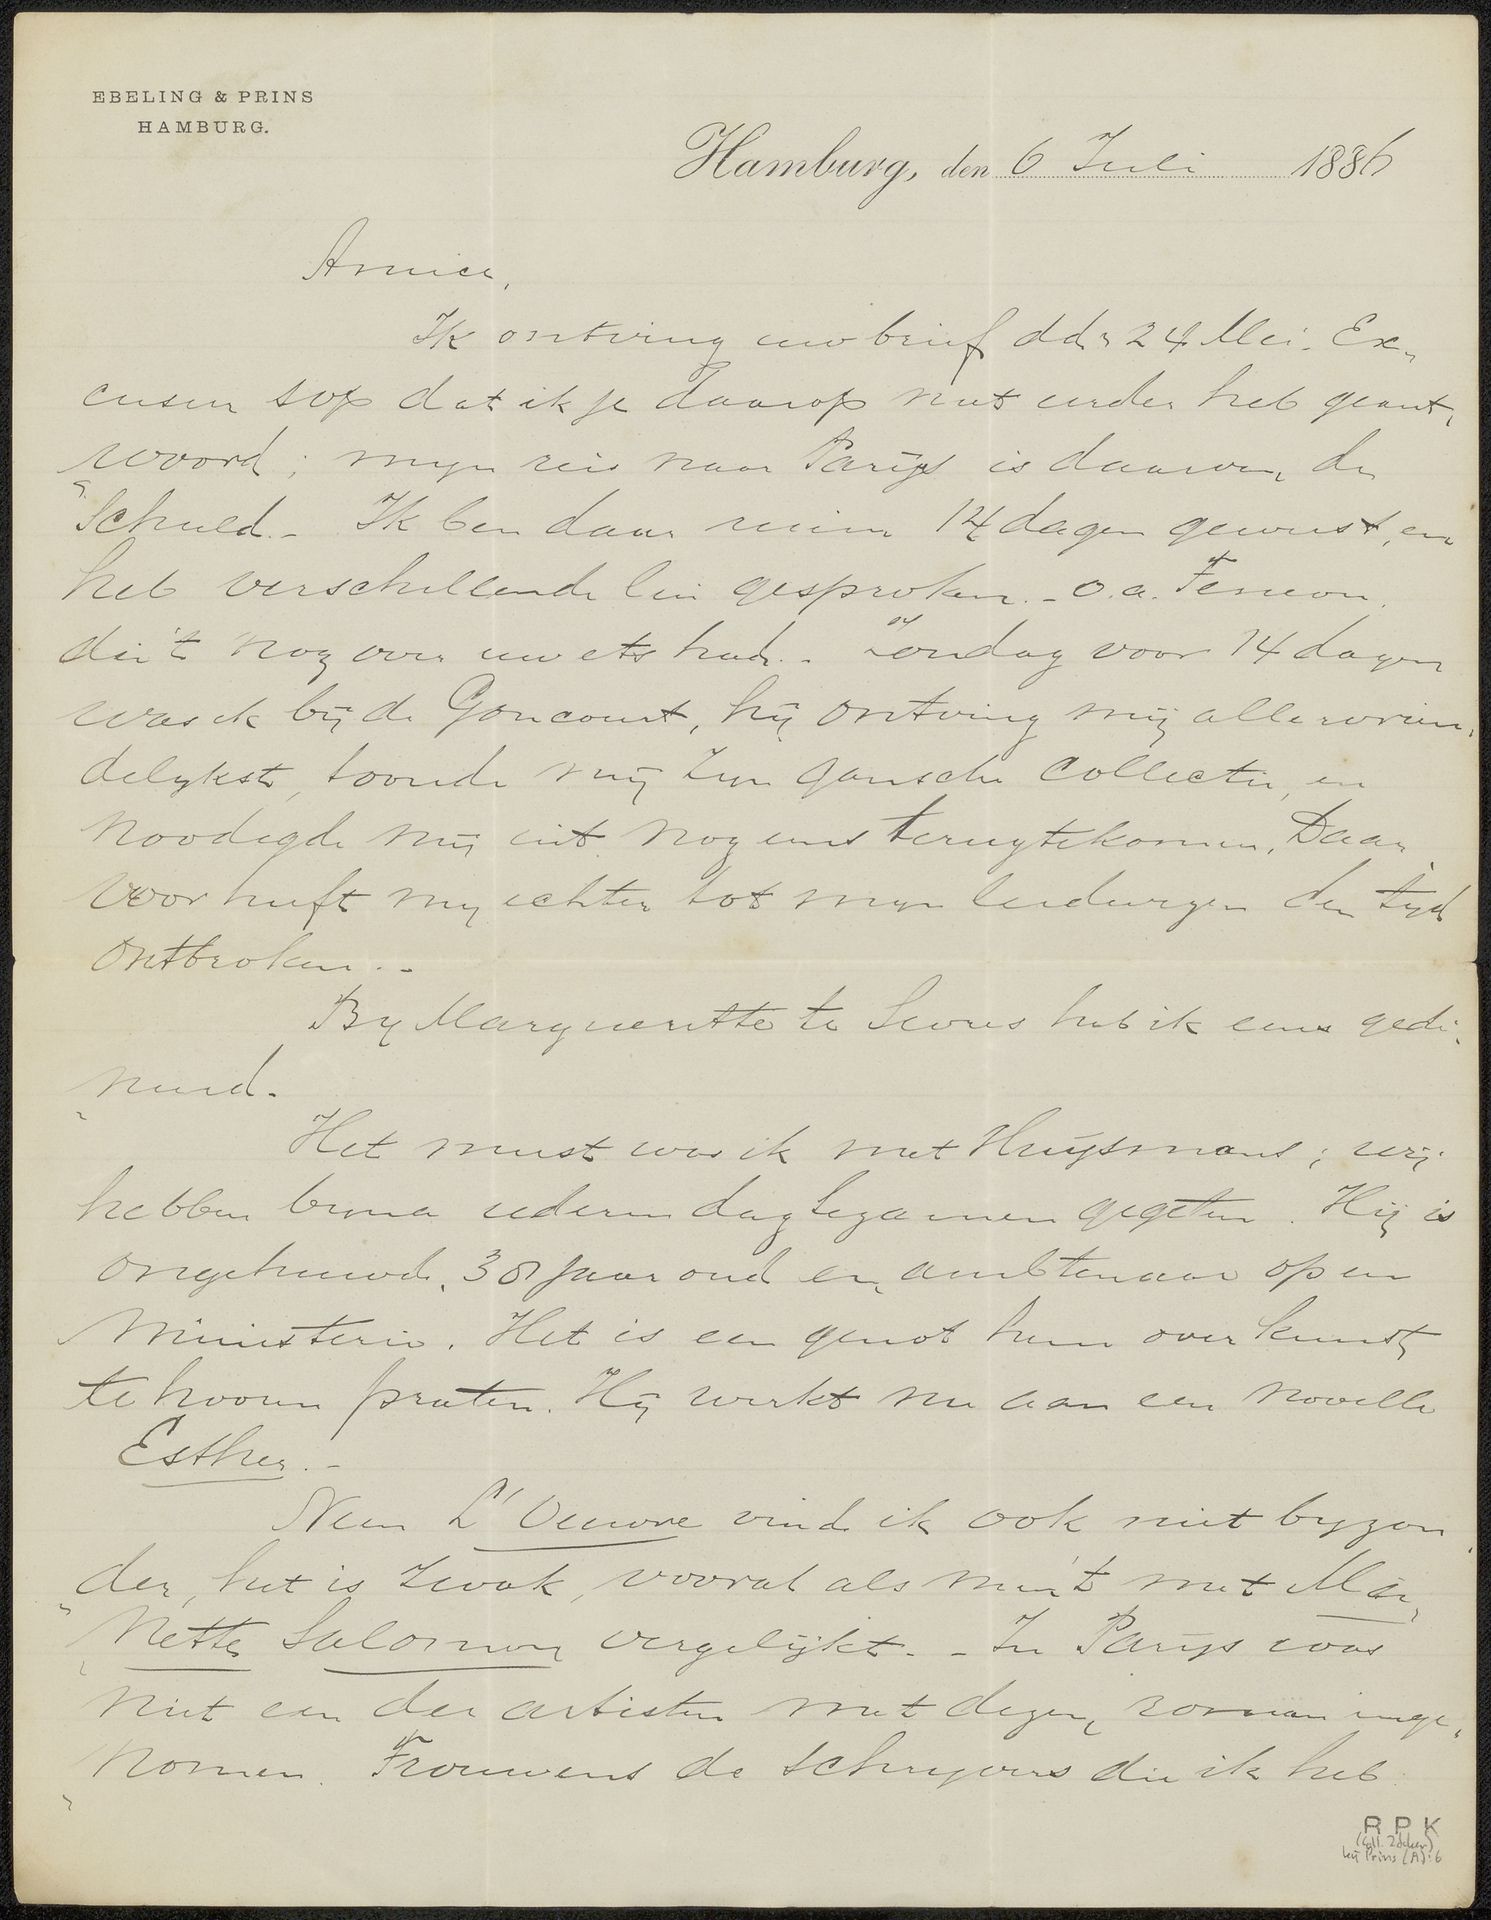 EBELING & PRINS
HAMBURG.
Hamburg, den 6 Juli 1886
Amice,
Ik ontving uw brief dd. 24 Mei. Ex-
cuseer dat ik je daarop niet eerder heb geant-
woord; myn reis naar Parijs is daarvan de
schuld. - Ik ben daar ruim 14 dagen geweest, en
heb verschillende lui gesproken. - o.a. Feneon.
die 't nog over uw ets had. - Zondag voor 14 dagen
was ik bij de Goncourt, hij ontving mij allervrien-
delykst, toonde mij zyn gansche collectie, en
noodigde mij uit nog eens terugtekomen. Daar
voor heeft my echter tot myn leedwezen den tyd
ontbroken. -
By Margueritte te Sevres heb ik eens gedi-
neerd.
Het meest was ik met Huysmans; wij
hebben byna iederen dag tezamen gegeten. Hij is
ongehuwd, 38 jaar oud en ambtenaar op een
Ministerie. Het is een genot hem over kunst
te hooren praten. Hij werkt nu aan een novelle
Esther. -
Neen L'Oeuvre vind ik ook niet byzon
der, het is zwak, vooral als men 't met Ma-
nette Salomon vergelijkt. - In Parijs was
niet een der artisten met dezen roman inge-
nomen. Trouwens de schryvers die ik heb
R P K
(Coll. Zilcken)
bij Prins (A): 6